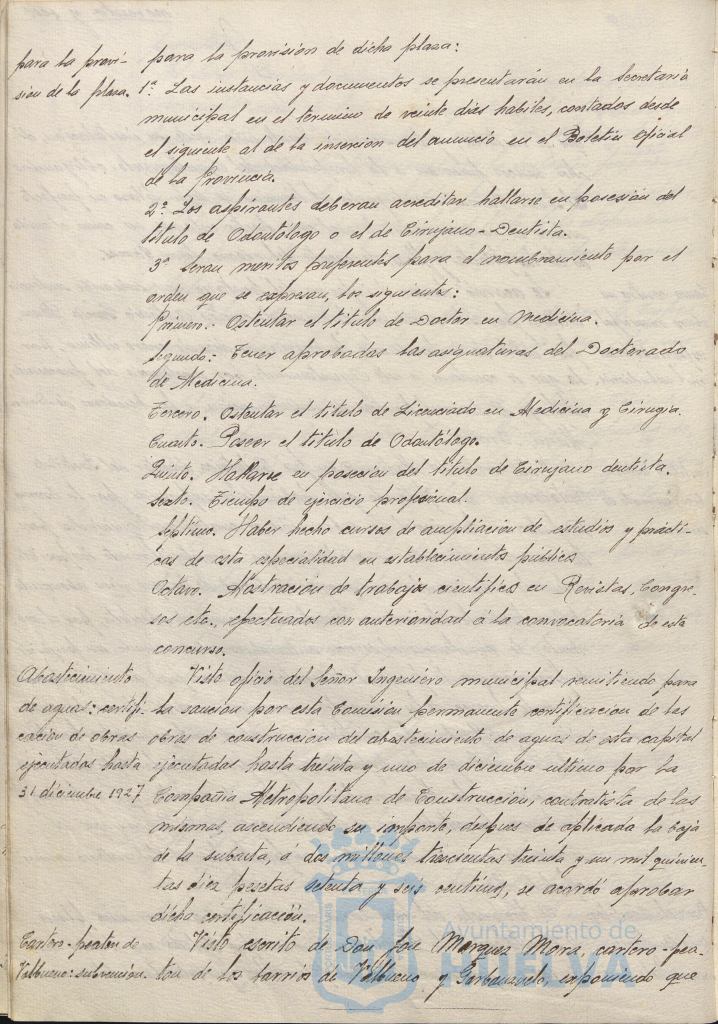 para la provi-
sión de la plaza.
para la provisión de dicha plaza:
1ª. Las instancias y documentos se presentarán en la Secretaría
municipal en el termino de veinte dias habiles, contados desde
el siguiente al de la insercion del anuncio en el Boletin oficial
de la Provincia.
2ª. Los aspirantes deberan acreditar hallarse en posesión del
titulo de Odontólogo o el de Cirujano-Dentista.
3ª Seran meritos preferentes para el nombramiento por el
orden que se expresan, los siguientes:
Primero.- Ostentar el titulo de Doctor en Medicina.
Segundo.- Tener aprobadas las asignaturas del Doctorado
de Medicina.
Tercero. Ostentar el titulo de Licenciado en Medicina y Cirugia.
Cuarto. Poseer el titulo de Odontólogo.
Quinto. Hallarse en posecion del titulo de Cirujano dentista.
Sexto. Tiempo de ejercicio profesional.
Septimo. Haber hecho cursos de ampliacion de estudios y practi-
cas de esta especialidad en establecimientos públicos
Octavo. Mostración de trabajos cientificos en Revistas, Congre-
sos etc. efectuados con anterioridad á la convocatoria de este
concurso.
Abastecimiento
de aguas: certifi-
cación de obras
ejecutadas hasta
31 diciembre 1927
Visto oficio del Señor Ingeniero municipal remitiendo para
la sancion por esta Comisión permanente certificacion de las
obras de construccion del abastecimiento de aguas de esta capital
ejecutadas hasta treinta y uno de diciembre ultimo por la
Compañia Metropolitana de Construcción, contratista de las
mismas, ascendiendo su importe, despues de aplicada la baja
de la subasta, á dos millones trescientas treinta y un mil quinien-
tas diez pesetas setenta y seis centimos, se acordó aprobar
dicha certificación.
Cartero-peaton de
Valbueno: subvencion.
Visto escrito de Don José Marquez Mora, cartero-pea-
ton de los barrios de Valbueno y Garbanzuelo, exponiendo que
Ayuntamiento de
HUELVA